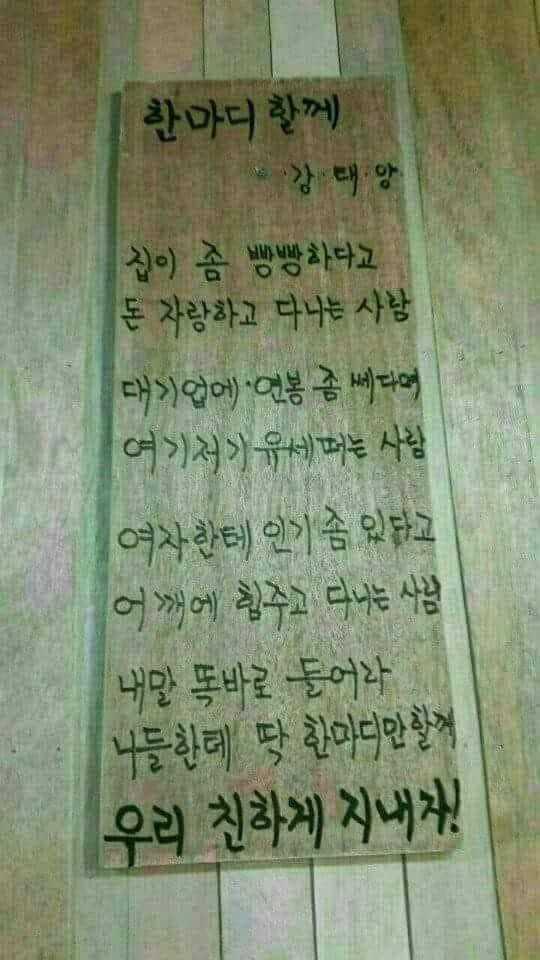 한마디 할께
강 태 양
집이 좀 빵빵하다고
돈 자랑하고 다니는 사람
대기업에 연봉 좀 쎄다며
여기저기 유세떠는 사람
여자한테 인기 좀 있다고
어깨에 힘주고 다니는 사람
내말 똑바로 들어라
니들한테 딱 한마디만할께
우리 친하게 지내자!